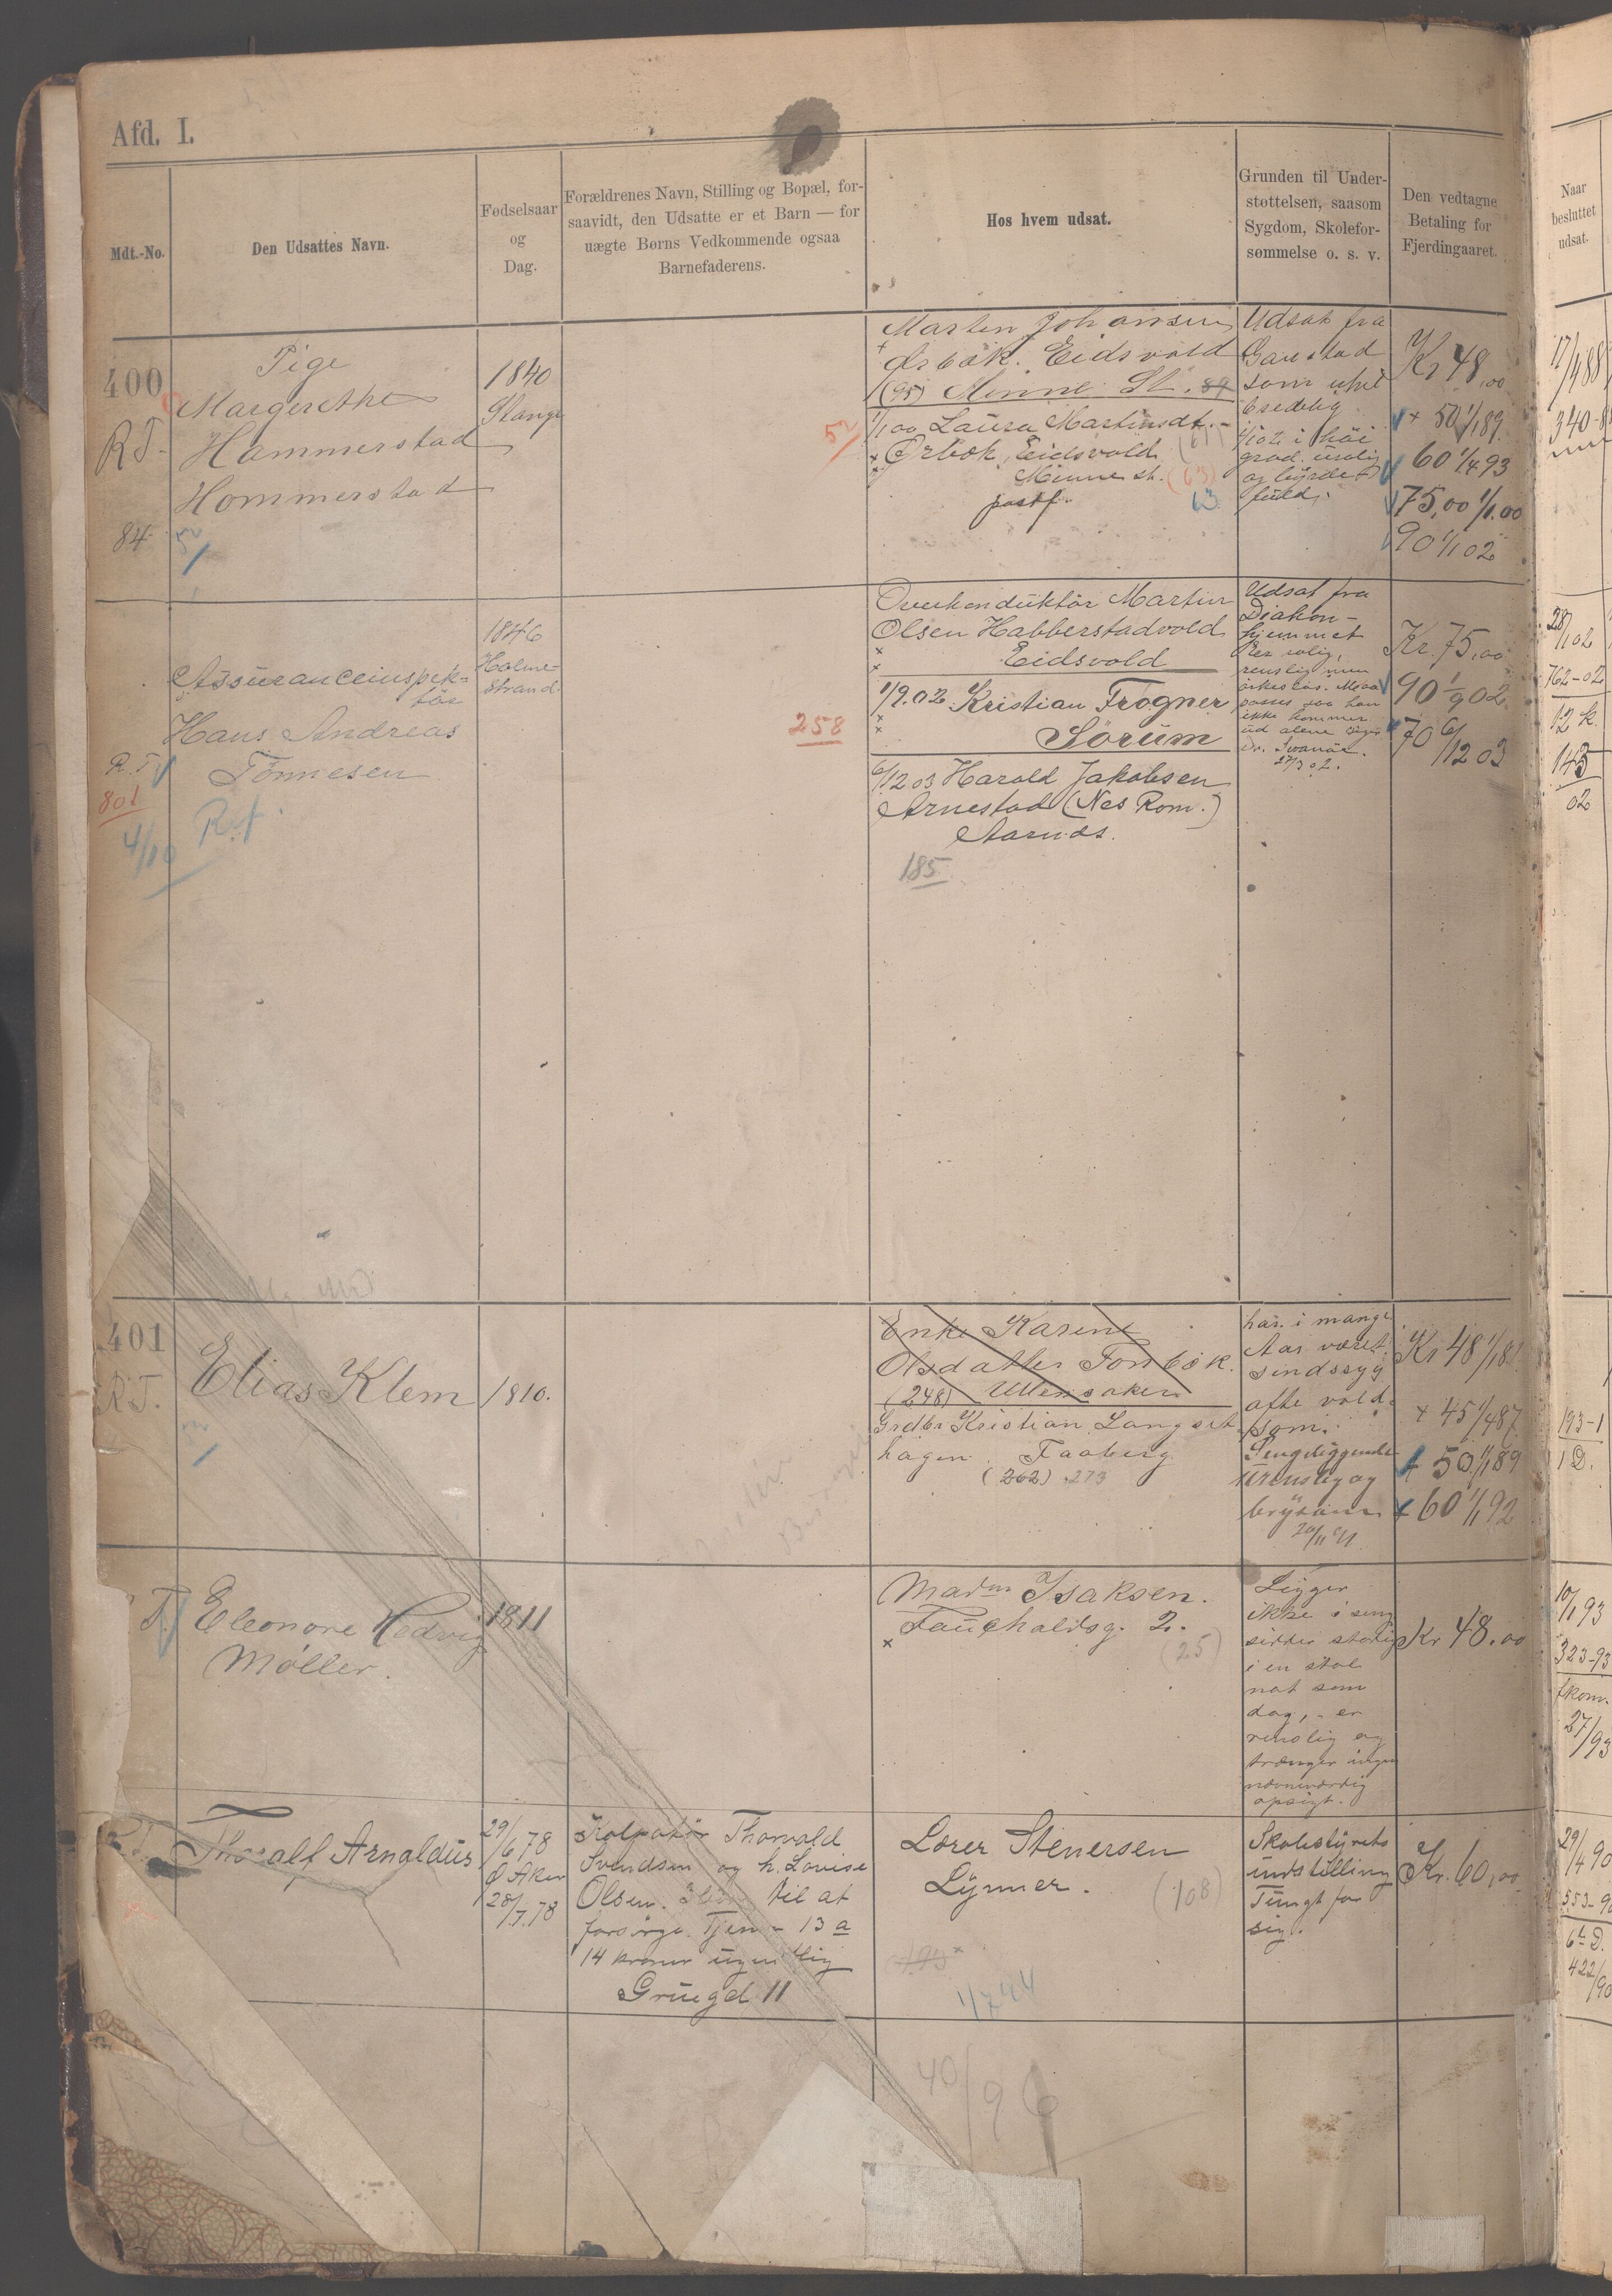 Afd. I.
Mdt.-No.
Den Udsattes Navn.
Fødselsaar
og
Dag.
Forældrenes Navn, Stilling og Bopæl, for-
saavidt, den Udsatte er et Barn — for
uægte Børns Vedkommende ogsaa
Barnefaderens.
Hos hvem udsat.
Grunden til Under-
støttelsen, saasom
Sygdom, Skolefor-
sømmelse o. s. v.
Den vedtagne
Betaling for
Fjerdingaaret.
Naar
besluttet
udsat.
400
R.T.
84
Pige
Margerethe
Hammerstad
Hommerstad
1840
Stange
Marten Johansen
Ørbök. Eidsvold
(95) Minne St. 89
1/1 00 Laura Martinsdt.
Ørbok, Eidsvold
Minne st. (63)
postf. 63
Udsat fra
som uhel
bredelig
1/1 02 i höi
grad urolig
og byrde-
fuld.
Kr 48,00
+ 50 1/1 89
60 1/4 93
75,00 1/1.00
90 1/1 02
17/4 88
340-88
R.T.
801
4/10
Assuranceinspek-
tör
Hans Andreas
Tönnesen
1846
Holme-
strand.
258
Overkonduktör Martin
Olsen Habberstadvold
Eidsvold
1/9.02 Kristian Frogner
Sörum
6/12 03 Harald Jakobsen
Arnestad (Nes Rom.)
Aarnæs.
185
Udsat fra
Diakon-
hjemmet
Er rolig,
renslig men
örkeslös. Maa
passes saa han
ikke kommer
ud alene siger
Dr. Svanöe.
27/3 02.
Kr. 75,00
90 1/9 02
70 6/12 03
28/1 02
762-02
12 k.
143
02
401
R.T.
Elias Klem
1810.
Enke Karene
Olsdatter Tonbök.
(248) Ullensaker
Grdbr Kristian Langset
hagen. Faaberg
(262) 273
har i mange
Aar været
sindssyg
ofte vold-
som.
Sengeliggende
urenslig og
brysom
Kr 48 1/1 81
+ 45 1/4 87
+ 50 1/1 89
+ 60 1/1 92
193-1
1 D.
T.
Eleonore Hedvig
Møller.
1811
Madm Isaksen.
Fauchaldsg. 2.
(25)
Ligger
ikke i seng
sidder stadig
i en stol
nat som
dag, - er
renslig og
trænger ingen
nævneværdig
opsigt.
Kr 48.00
10/1 93
323-93
fkom.
27/93
Thoralf Arnaldus
29/6 78
Ø Aker
28/7.78
Kolportör Thorvald
Svendsen og h. Lovise
Olsen. til at
forsörge. Tjen - 13 a
14 kroner ugentlig
Gruegd 11
Lærer Stenersen
Lynner.
(108)
193
1/7 44
Skolestyrets
indstilling
Tungt for
sig.
Kr. 60,00
29/4 90
553-90
6te D.
422/90
40/96